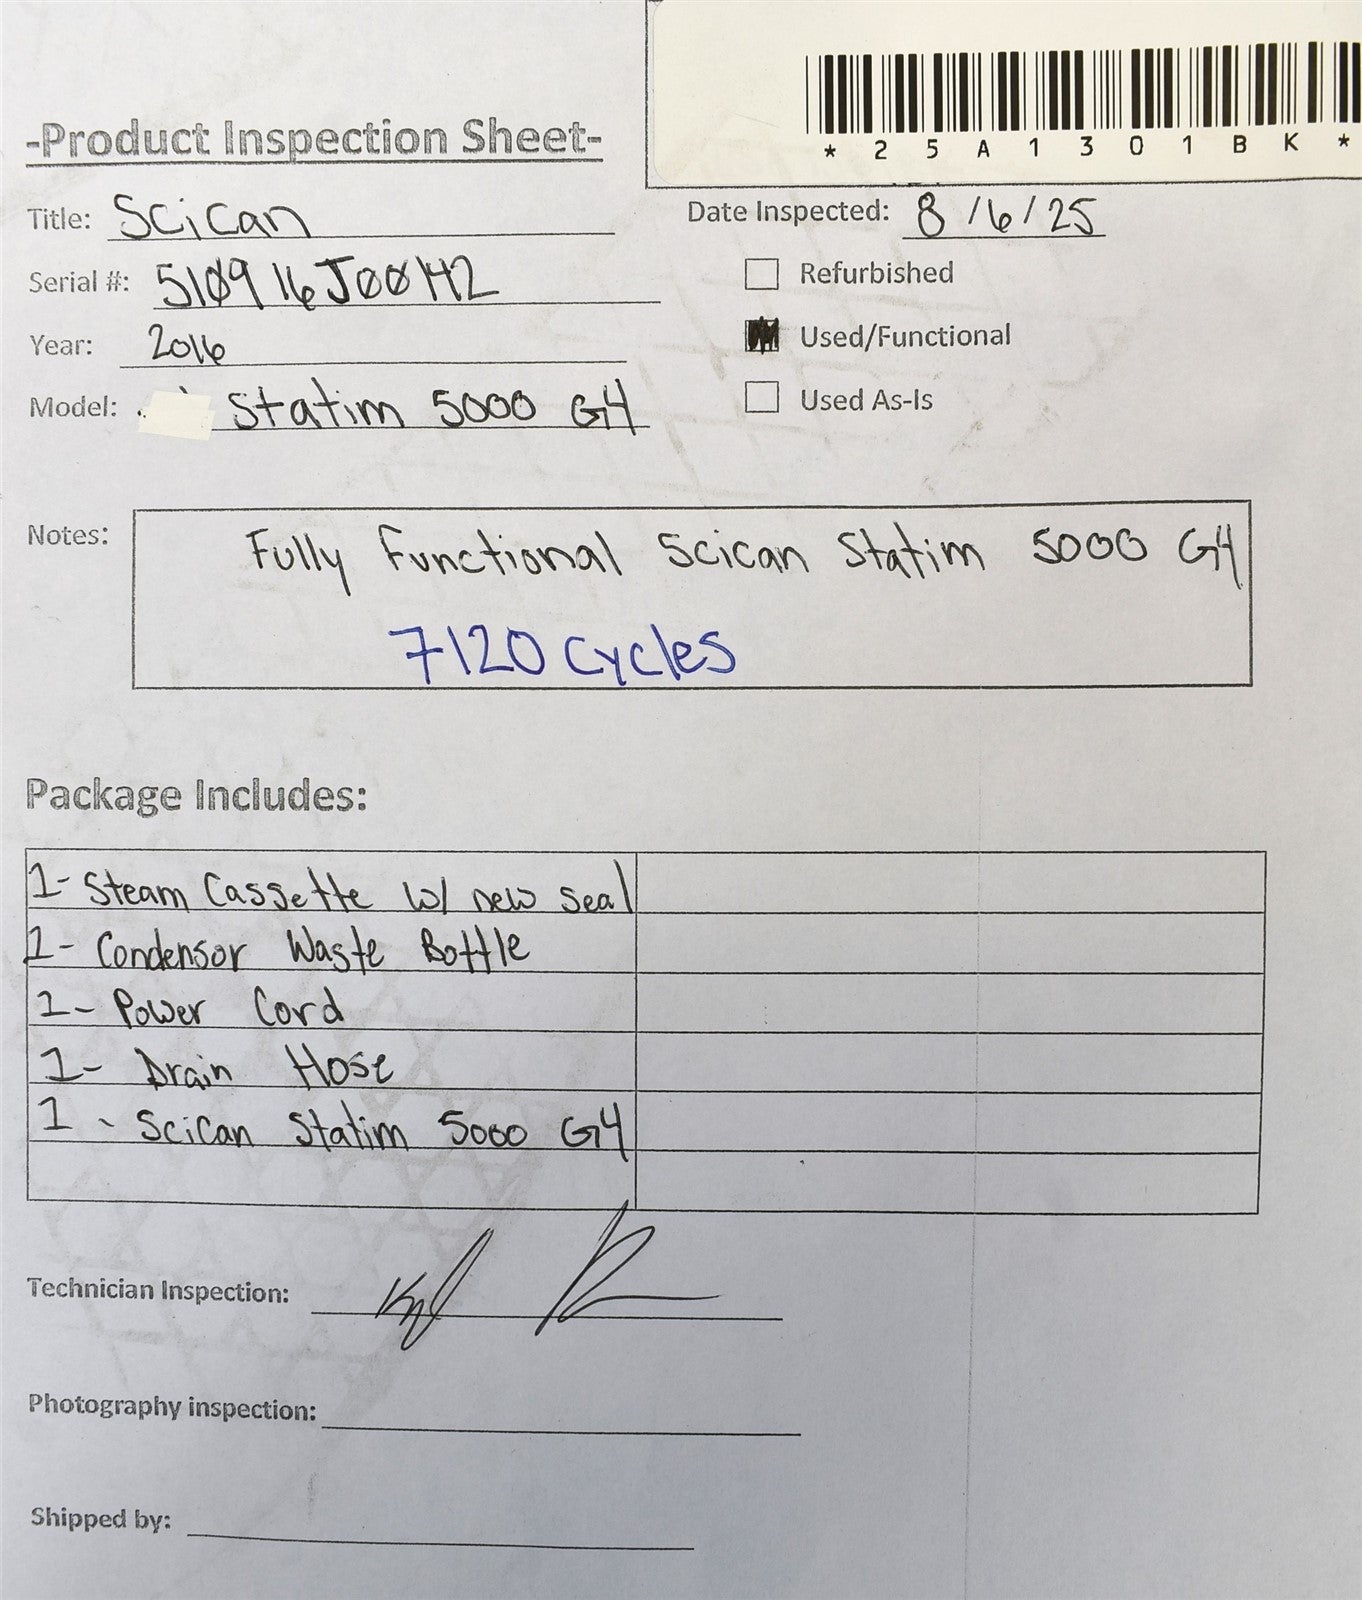 * 2 5 A 1 3 0 1 B K *
-Product Inspection Sheet-
Title: Scican
Date Inspected: 8/6/25
Serial #: 510916J00142
Refurbished
Year: 2016
Used/Functional
Model: Statim 5000 G4
Used As-Is
Notes: Fully Functional Scican Statim 5000 G4
7120 Cycles
Package Includes:
1- Steam Cassette w/ new seal
1- Condensor Waste Bottle
1- Power Cord
1- Drain Hose
1- SciCan Statim 5000 G4
Technician Inspection:
Photography inspection:
Shipped by: